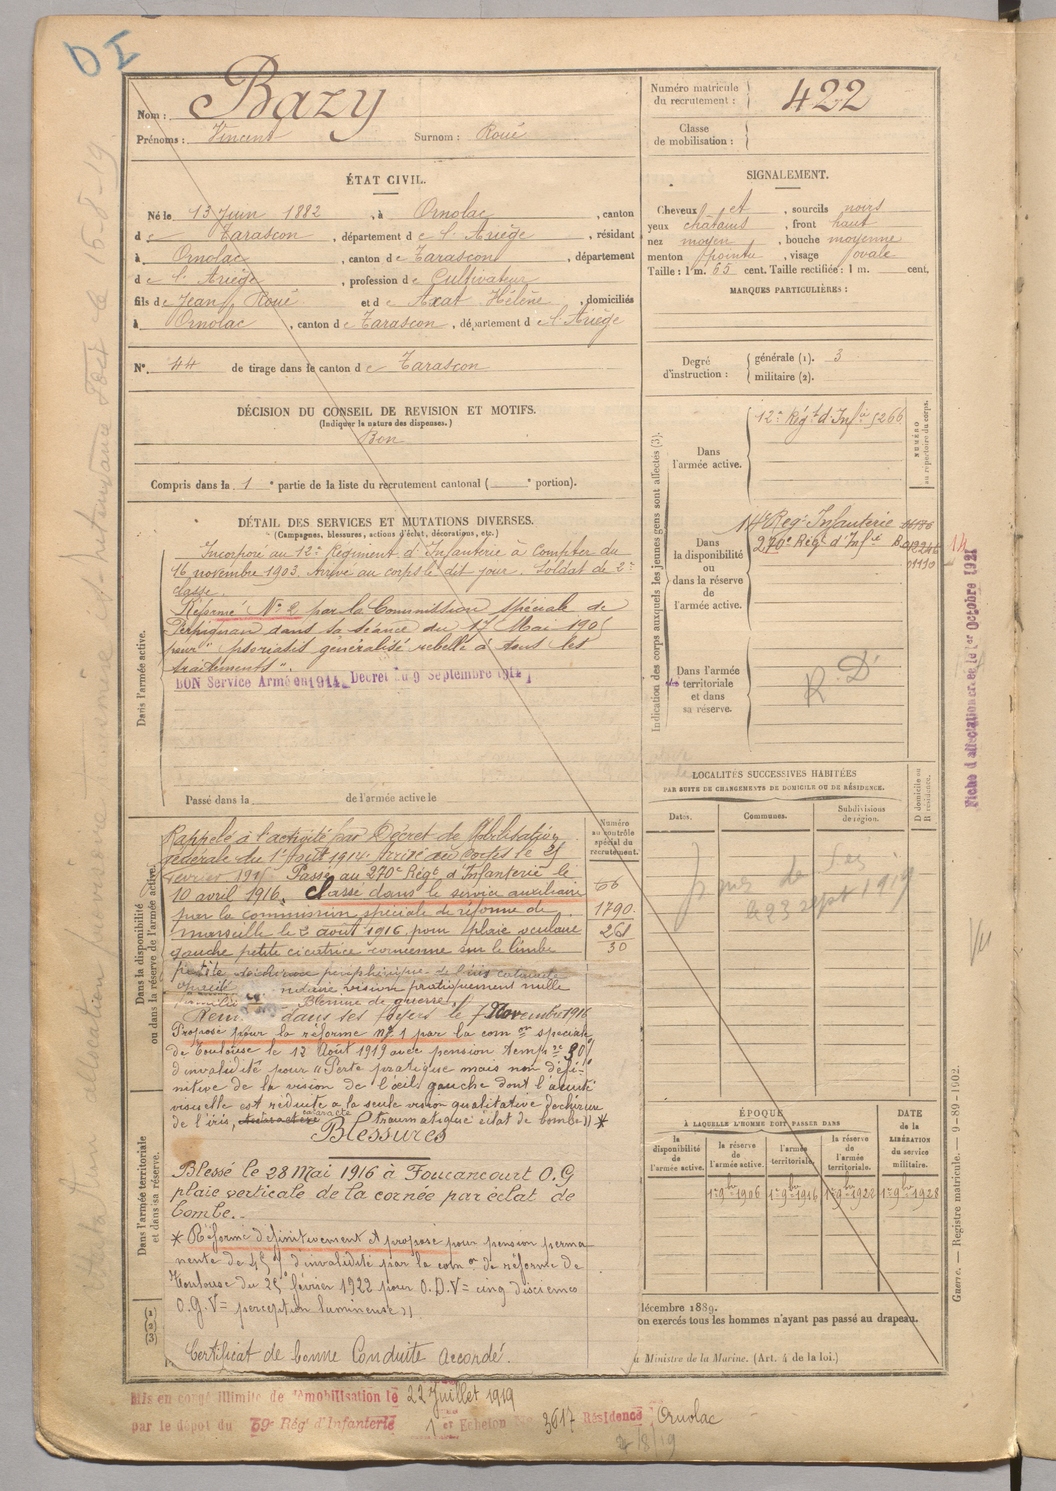 D I
Nom : Bazy
Prénoms : Vincent Surnom : Roué
ÉTAT CIVIL.
Né le 13 Juin 1882, à Ornolac, canton
d e Tarascon, département d e l'Ariège, résidant
à Ornolac, canton d e Tarascon, département
d e l'Ariège, profession de Cultivateur
fils d e Jean, Roué et d e Axat Hélène, domiciliés
à Ornolac, canton d e Tarascon, département d e l'Ariège
N° 44 de tirage dans le canton d e Tarascon
DÉCISION DU CONSEIL DE REVISION ET MOTIFS.
(Indiquer la nature des dispenses.)
Bon
Compris dans la 1e partie de la liste du recrutement cantonal ( e portion).
DÉTAIL DES SERVICES ET MUTATIONS DIVERSES.
(Campagnes, blessures, actions d'éclat, décorations, etc.)
Dans l'armée active.
Incorporé au 12e Régiment d'Infanterie à compter du
16 novembre 1903. Arrivé au corps le dit jour. Soldat de 2e
classe.
Réformé N° 2 par la Commission spéciale de
Perpignan dans sa séance du 17 Mai 1905
pour "psoriasis généralisé rebelle à tous les
traitements".
BON Service Armé en 1914 Décret du 9 Septembre 1914
Passé dans la de l'armée active le
Dans la disponibilité
ou dans la réserve de l'armée active.
Rappelé à l'activité par Décret de Mobilisation
générale du 1er Août 1914. Arrivé au corps le 25
février 1915. Passé au 270e Régt d'Infanterie le
10 avril 1916. Classé dans le service auxiliaire
par la commission spéciale de réforme de
Marseille le 2 août 1916 pour plaie oculaire
gauche petite cicatrice cornéenne sur le limbe
petite déchirure périphérique de l'iris cataracte
vision pratiquement nulle
Blessure de guerre.
dans ses foyers le 7 Novembre 1916
Proposé pour la réforme n° 1 par la com on spéciale
de Toulouse le 12 Août 1919 avec pension temp re 30%
d'invalidité pour "Perte pratique mais non défi-
nitive de la vision de l'œil gauche dont l'acuité
visuelle est réduite a la seule vision qualitative déchirure
de l'iris, cataracte traumatique éclat de bombe" *
Dans l'armée territoriale
et dans sa réserve.
Blessures
Blessé le 28 Mai 1916 à Foucancourt O.G
plaie verticale de la cornée par éclat de
bombe.
* Réformé définitivement et proposé pour pension perma
nente de 25% d'invalidité par la com on de réforme de
Toulouse du 25 février 1922 pour O.D.V = cinq dixièmes
O.G.V = perception lumineuse"
Certificat de bonne Conduite Accordé.
(1)
(2)
(3)
Mis en congé illimité de démobilisation le 22 Juillet 1919
par le dépôt du 59e Rég d'Infanterie 1er Echelon N° 3617 Résidence : Ornolac
Numéro
au contrôle
spécial du
recrutement.
66
1790
261
30
Numéro matricule
du recrutement : 422
Classe
de mobilisation :
SIGNALEMENT.
Cheveux et, sourcils noirs
yeux châtains, front haut
nez moyen, bouche moyenne
menton pointu, visage ovale
Taille : 1 m. 65 cent. Taille rectifiée : 1 m. cent.
MARQUES PARTICULIÈRES :
Degré
d'instruction :
générale (1). 3
militaire (2).
Indication des corps auxquels les jeunes gens sont affectés (3).
NUMÉRO
au répertoire du corps.
Dans
l'armée active.
12e Régt d'Infie 5266
Dans
la disponibilité
ou
dans la réserve
de
l'armée active.
14e Régt Infanterie
270e Régt d'Infie
01110
Dans l'armée
territoriale
et dans
sa réserve.
R. D
LOCALITÉS SUCCESSIVES HABITÉES
PAR SUITE DE CHANGEMENTS DE DOMICILE OU DE RÉSIDENCE.
Dates.
Communes.
Subdivisions
de région.
D domicile ou
R résidence.
le 23 sept 1919
ÉPOQUE
À LAQUELLE L'HOMME DOIT PASSER DANS
la
disponibilité
de
l'armée active.
la réserve
de
l'armée active.
l'armée
territoriale.
la réserve
de
l'armée
territoriale.
DATE
de la
LIBÉRATION
du service
militaire.
1er 9bre 1906
1er 9bre 1916
1er 9bre 1922
1er 9bre 1928
décembre 1889.
on exercés tous les hommes n'ayant pas passé au drapeau.
u Ministre de la Marine. (Art. 4 de la loi.)
Fiche d'affectation créée le 1er Octobre 1921
Guerre. — Registre matricule. — 9-89-1902.